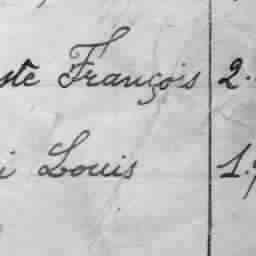 François 2.
Louis 1.